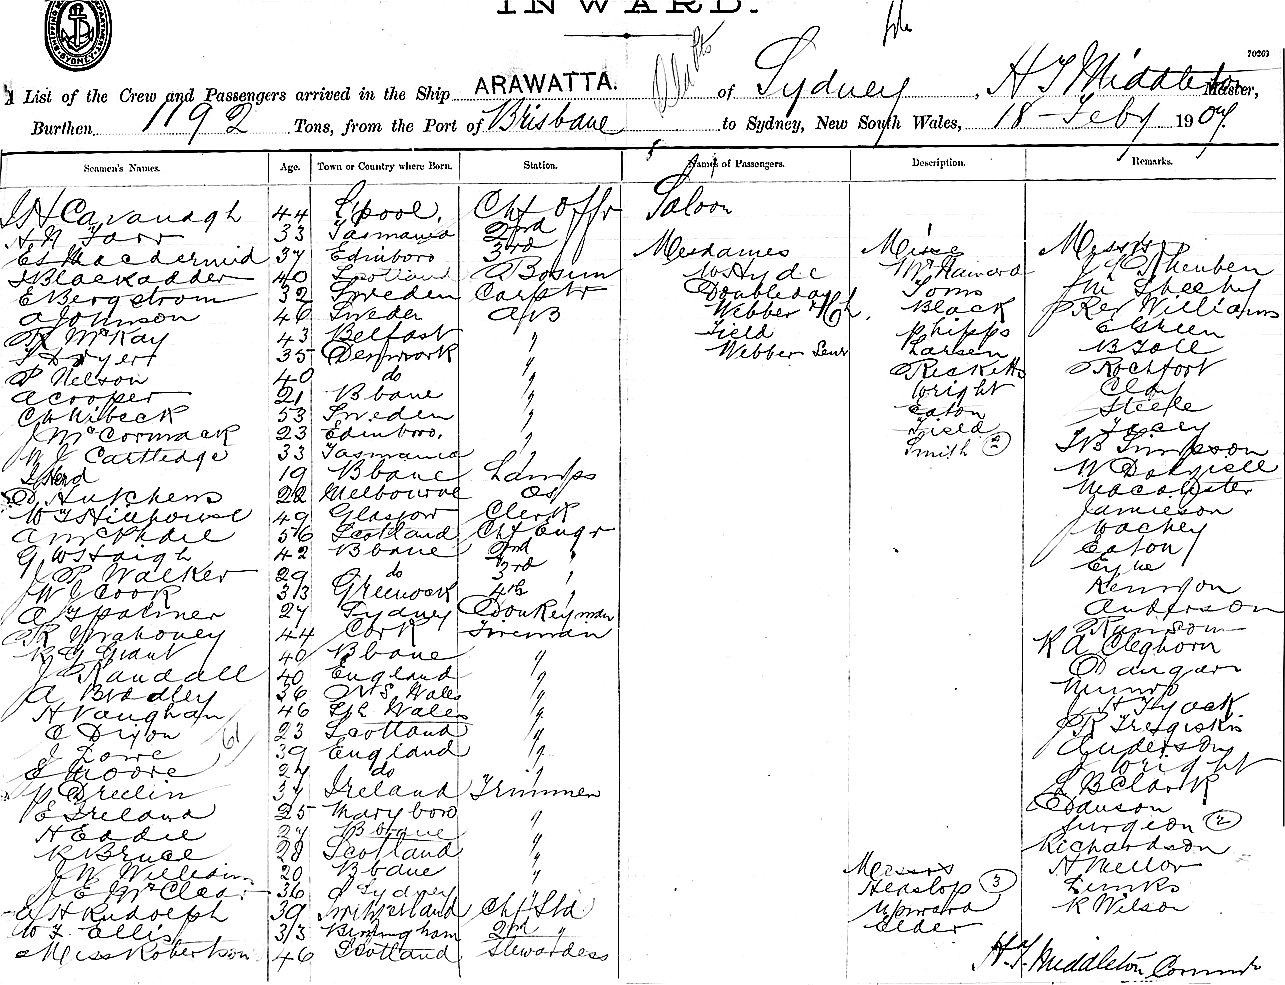 INWARD.
70263
A List of the Crew and Passengers arrived in the Ship ARAWATTA. of Sydney, H T Middleton Master,
Burthen 1192 Tons, from the Port of Brisbane to Sydney, New South Wales, 18 Feby 1907
Seamen's Names. Age. Town or Country where Born. Station. Names of Passengers. Description. Remarks.
Saloon
J H Cavanagh 44 L'pool. Chf Offr
H N Tarr 33 Tasmania 2nd
E S Macdermid 37 Edinboro 3rd
J Blackadder 40 Scotland Bosun
E Bergstrom 32 Sweden Carptr
A Johnson 46 Sweden AB
R McKay 43 Belfast "
J Dwyer 35 Denmark "
P Nelson 40 do "
A Cooper 21 Bbane "
C Wibeck 53 Sweden "
J McCormack 23 Edinboro. "
W J Cartledge 33 Tasmania "
J Herd 19 Bbane Lamps
D Hutchens 22 Melbourne OS
W T Hillhouse 49 Glasgow Clerk
A McPhail 56 Scotland Chf Engr
G W Haigh 42 Bbane 2nd "
J P Walker 29 do 3rd "
W J Cook 33 Greenock 4th "
A T Palmer 27 Sydney Donkeyman
R Mahoney 44 Cork Fireman
R G Grant 40 Bbane "
J Randall 40 England "
A Bradley 36 N S. Wales "
H Vaughan 46 Sth Wales "
C Dixon 23 Scotland "
61
J Lowe 39 England "
E Moore 27 do "
P Breslin 37 Ireland Trimmer
E Ireland 25 Maryboro "
H Eddie 27 Bbane "
R Bruce 28 Scotland "
J W William 20 Bbane "
J E McClea 36 Sydney "
A H Rudolph 39 Switzerland Chf Std
W J Ellis 33 Birmingham 2nd "
Miss Robertson 46 Scotland Stewardess
Mesdames
W Hyde
Doubleday
Webber
Field
Webber Senr
Misses
McNamara
Toms
Black
Phipps
Larsen
Ricketts
Wright
Eaton
Field
Smith 2
Messrs
Heaslop 3
Upward
Elder
Messrs
Rev Williams
E Green
B Toll
Rochfort
Clay
Steele
Tasey
T B Simpson
W Dalziell
Macalister
Jamieson
Eaton
Kennyon
Anderson
Ransom
R A Cleghorn
Dangar
Munro
Anderson
J Wright
L B Clark
Surgeon 2
Richardson
H Mellor
R Wilson
H.T. Middleton